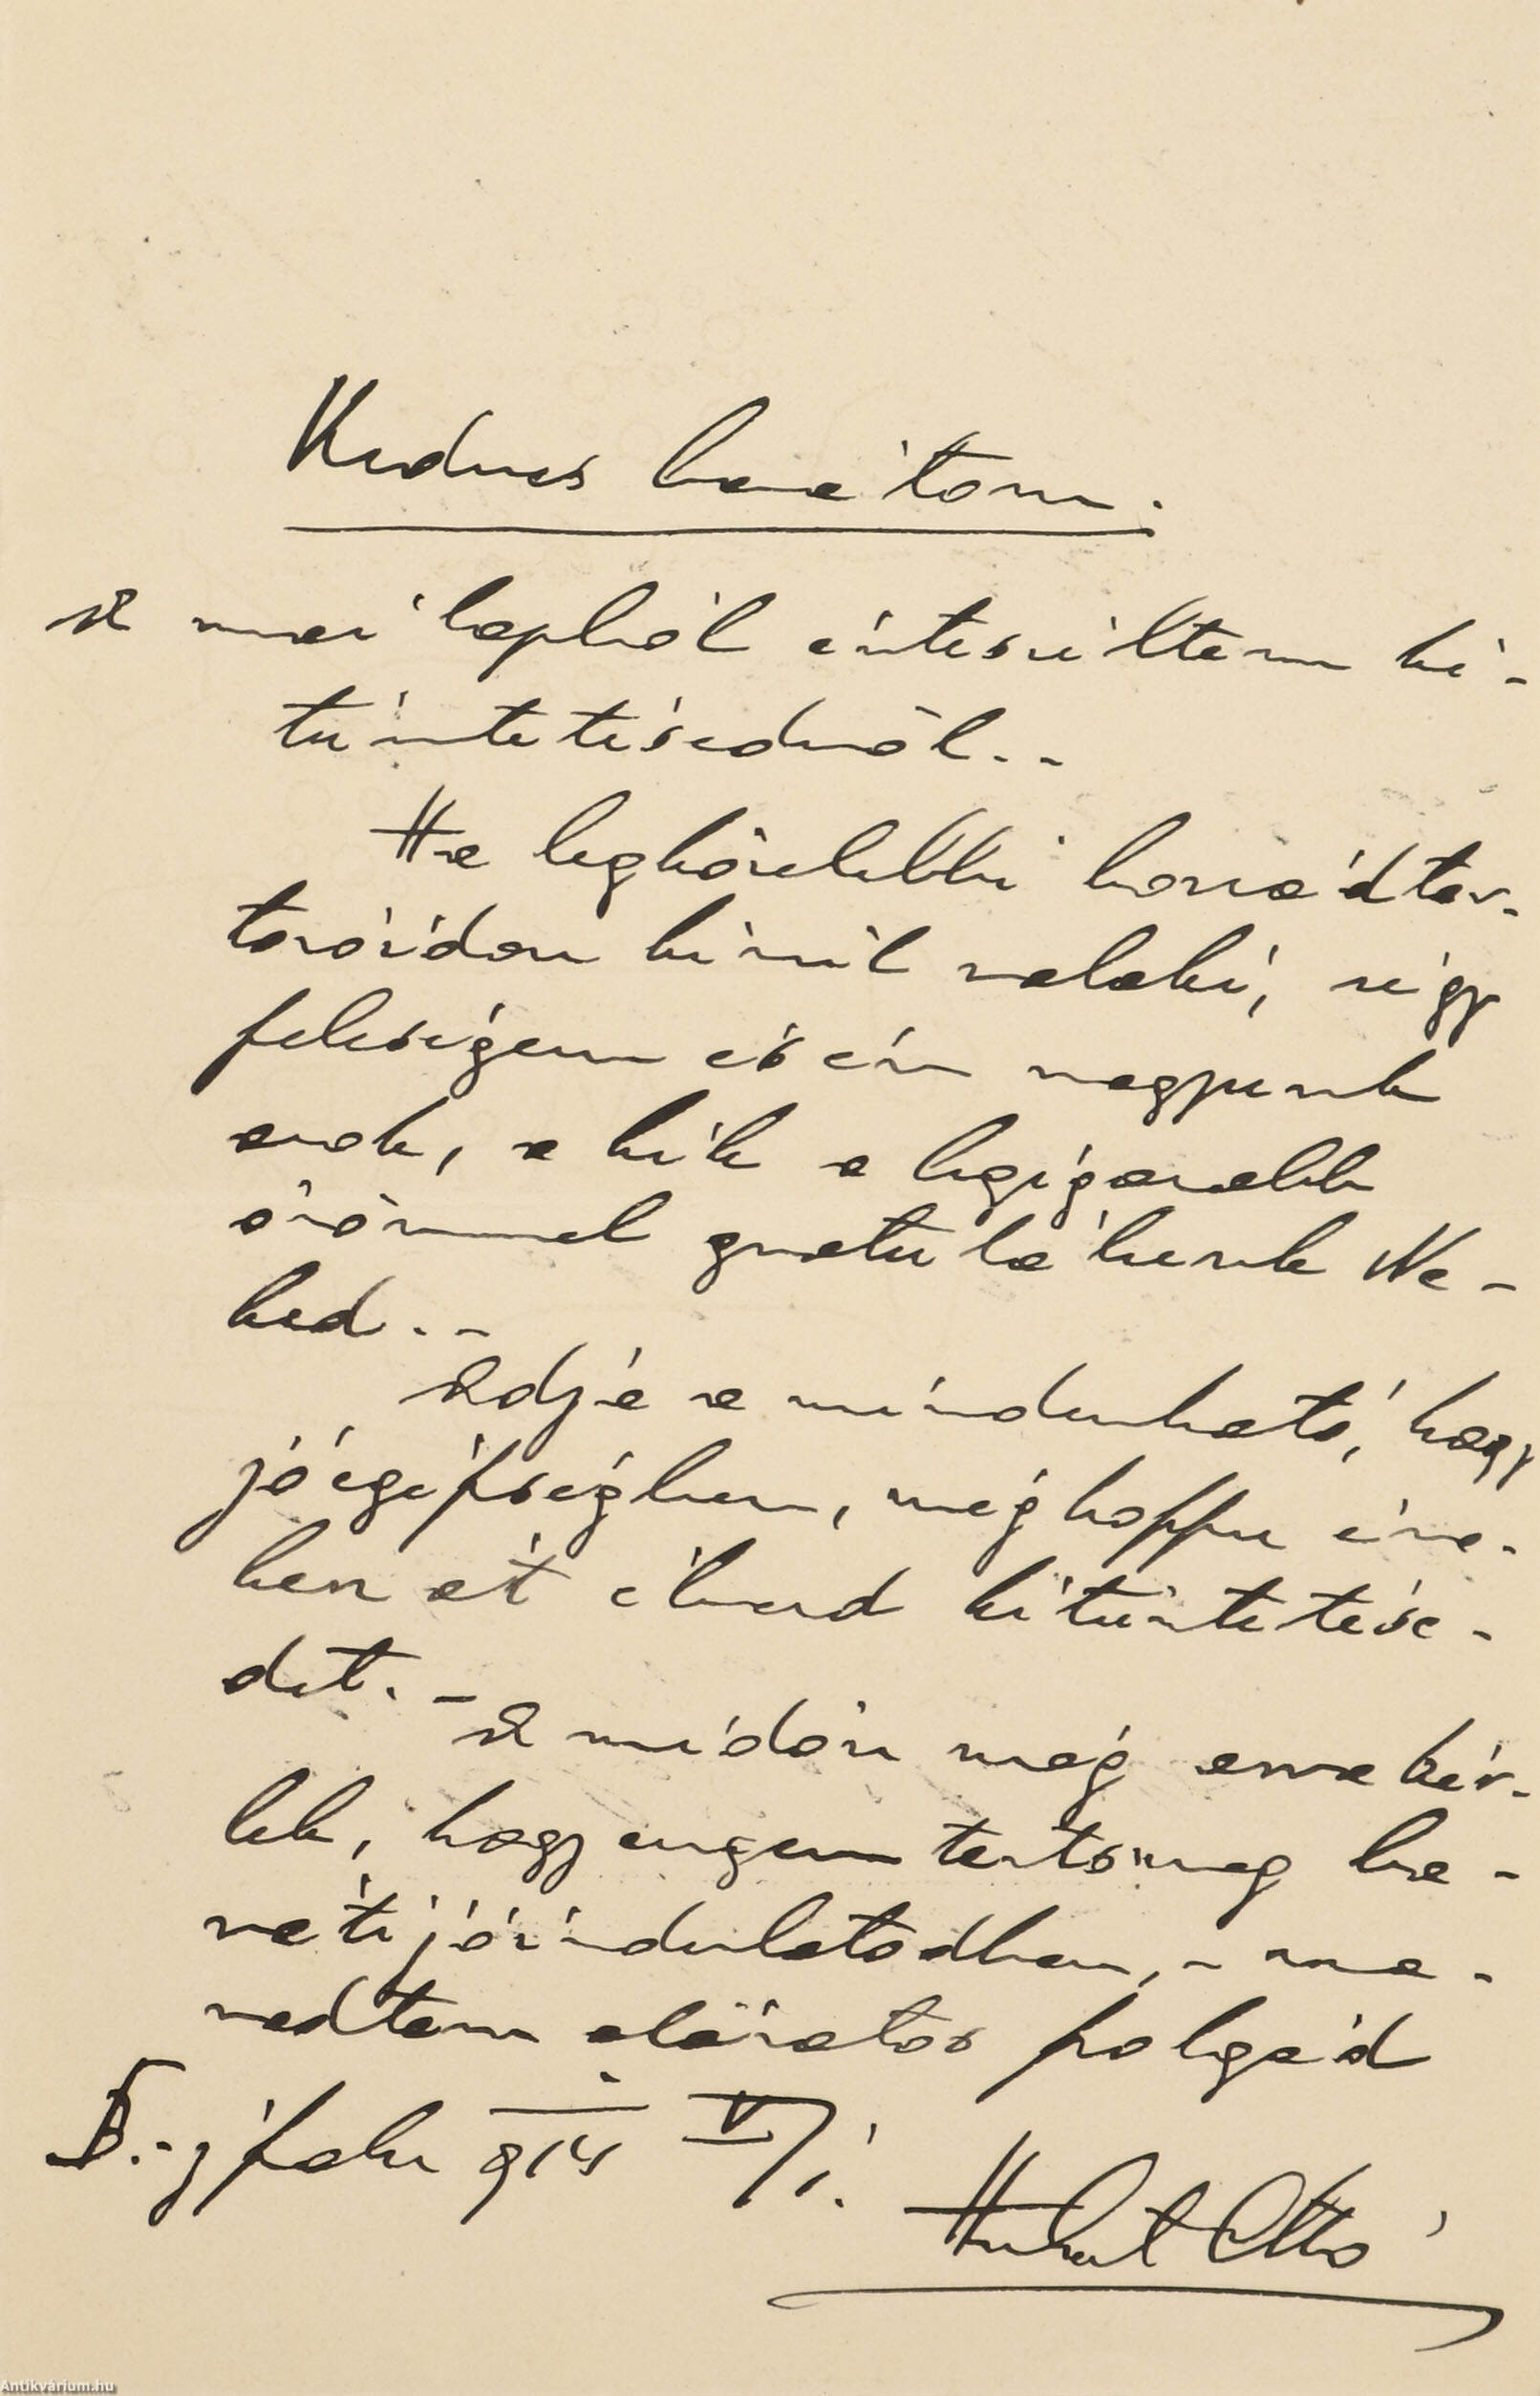 Kedves barátom.
A mai lapból értesültem ki-
tüntetésedről. -
Ha legközelebbi hozzádtar-
tozóidon kivül valaki, úgy
feleségem és én vagyunk
azok, a kik a legigazabb
örömmel gratulálunk Ne-
ked. -
Adja a mindenható, hogy
jó egéfségben, még hoffzu éve-
ken át élvezd kitüntetése-
det. - A midőn még arra kér-
lek, hogy engem tarts meg ba-
ráti jóindulatodban, - ma-
radtam alázatos szolgád
B.-gífalu 914 V/1.
Hubert Ottó
Antikvárium.hu